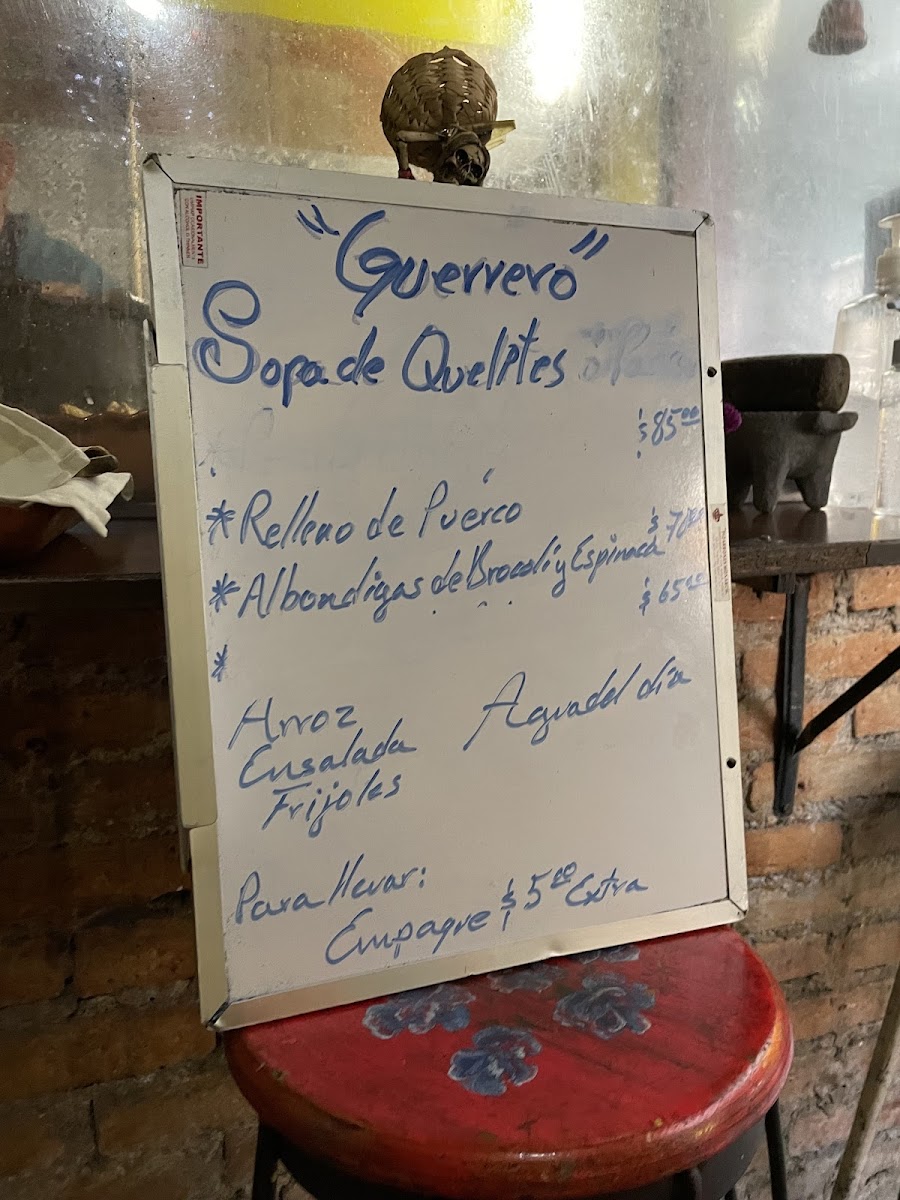 IMPORTANTE
"Guerrero"
Sopa de Quelites
$85.00
* Relleno de Puerco
$70.00
* Albondigas de Brocoli y Espinaca
$65.00
*
Arroz
Agua del día
Ensalada
Frijoles
Para llevar:
Empaque $5.00 Extra